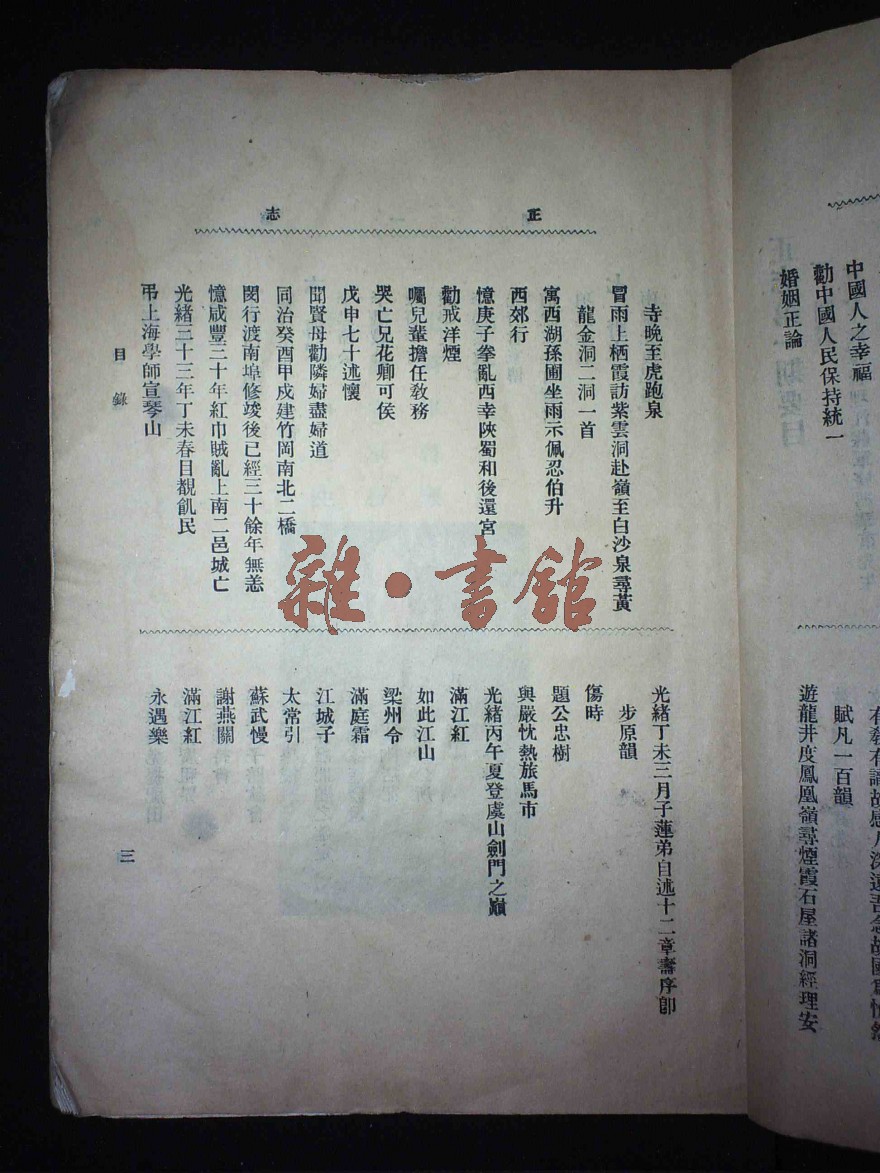 中國人之幸福
勸中國人民保持統一
婚姻正論
賦凡一百韻
遊龍井度鳳凰嶺尋煙霞石屋諸洞經理安
正志
寺晚至虎跑泉
冒雨上栖霞訪紫雲洞赴嶺至白沙泉尋黃
龍金洞二洞一首
寓西湖孫圃坐雨示佩忍伯升
西郊行
憶庚子拳亂西幸陝蜀和後還宮
勸戒洋煙
囑兒輩擔任敎務
哭亡兄花卿可侯
戊申七十述懷
聞賢母勸隣婦盡婦道
同治癸酉甲戌建竹岡南北二橋
閔行渡南埠修竣後已經三十餘年無恙
憶咸豐三十年紅巾賊亂上南二邑城亡
光緒三十三年丁未春目覩飢民
弔上海學師宣琴山
光緒丁未三月子蓮弟自述十二章壽序卽
步原韻
傷時
題公忠樹
與嚴忱熱旅馬市
光緒丙午夏登虞山劍門之巔
滿江紅
如此江山
梁州令
滿庭霜
江城子
太常引
蘇武慢
謝燕關
滿江紅
永遇樂
目錄
三
雜·書館